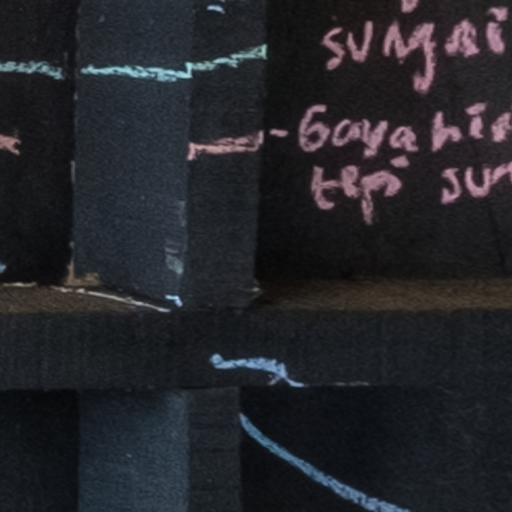 sungai
- Gaya hid
tepi sun